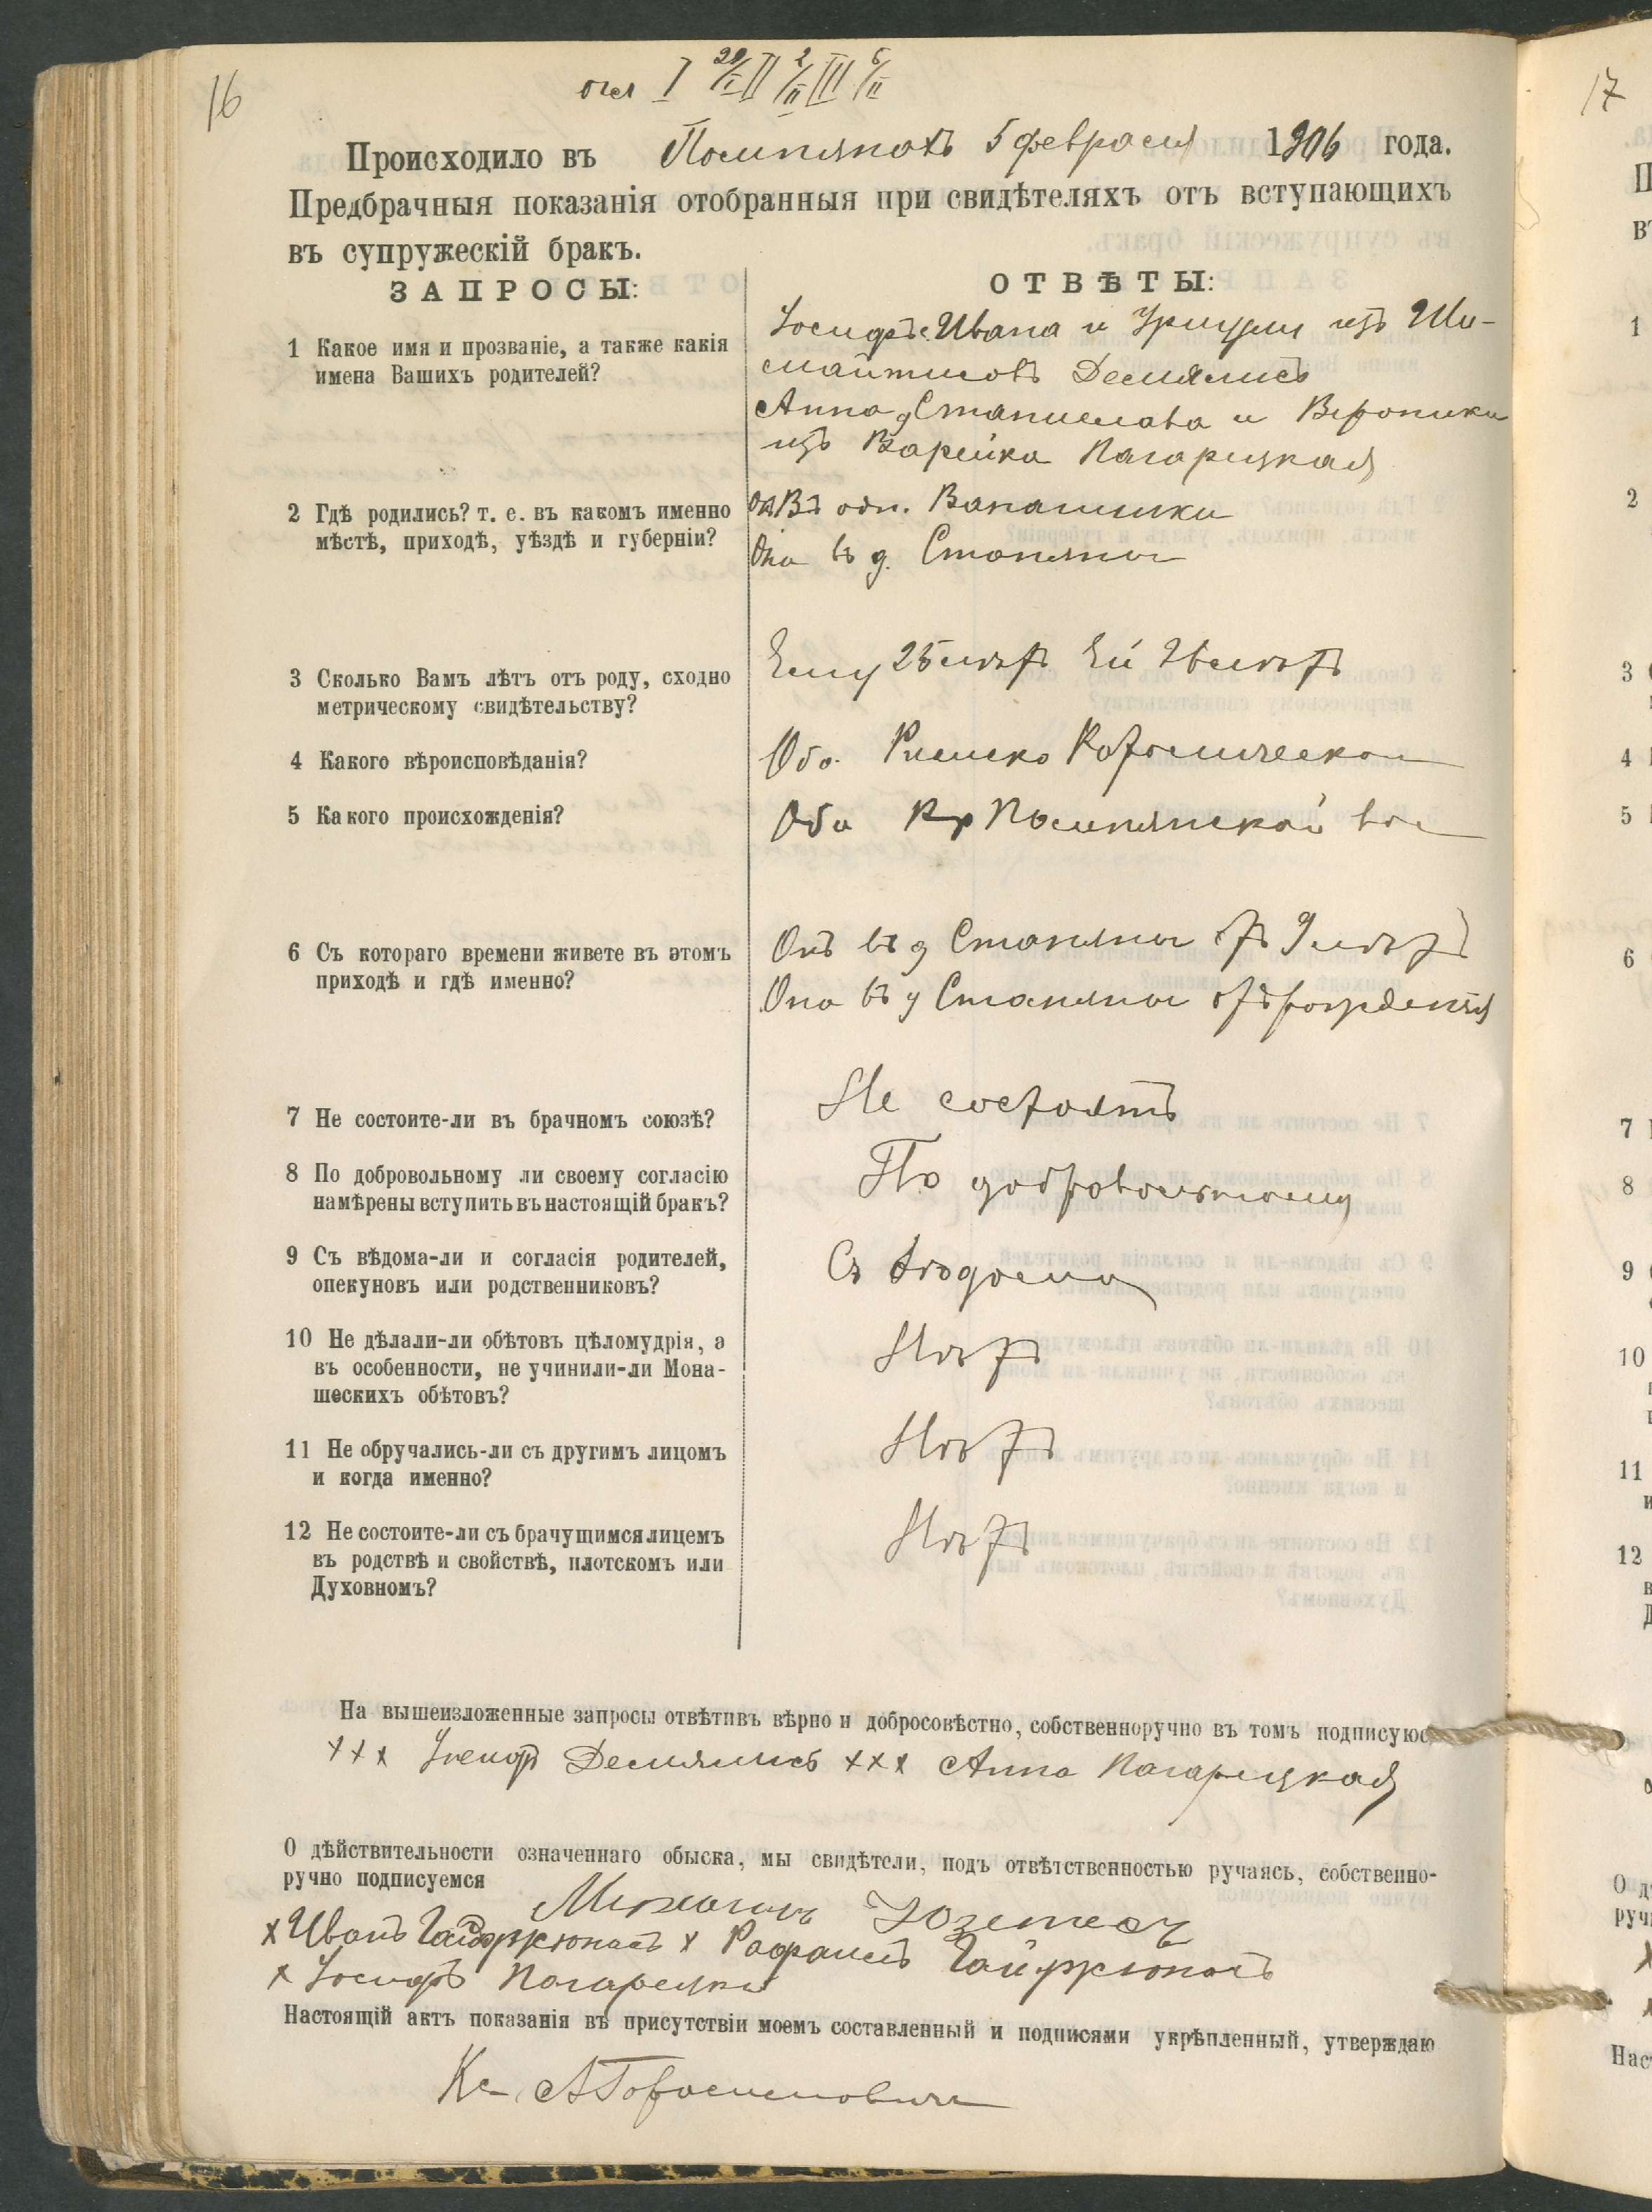 16
огл I 29/I II 2/II III 5/II
Происходило въ Помпянахъ 5 февраля 1906 года.
Предбрачныя показанія отобранныя при свидѣтеляхъ отъ вступающихъ
въ супружескій бракъ.
ЗАПРОСЫ:
ОТВѢТЫ:
1 Какое имя и прозваніе, а также какія
имена Вашихъ родителей?
Іосифъ с. Ивана и Уршули изъ Ши-
майтисовъ Демялисъ
Анна д Станислава и Вероники
изъ Варейка Нагарецкая
2 Гдѣ родились? т. е. въ какомъ именно
мѣстѣ, приходѣ, уѣздѣ и губерніи?
Въ
Она въ д. Стопяны
3 Сколько Вамъ лѣтъ отъ роду, сходно
метрическому свидѣтельству?
Ему 25 лѣтъ Ей лѣтъ
4 Какого вѣроисповѣданія?
Оба Римско Католическаго
5 Какого происхожденія?
Оба Кр Помпянской вол
6 Съ котораго времени живете въ этомъ
приходѣ и гдѣ именно?
Онъ въ д Стапяны отъ 9 лѣтъ
Она въ д Стапяны отъ рожденія
7 Не состоите-ли въ брачномъ союзѣ?
Не состоятъ
8 По добровольному ли своему согласію
намѣрены вступить въ настоящій бракъ?
По добровольному
9 Съ вѣдома-ли и согласія родителей,
опекуновъ или родственниковъ?
Съ вѣдома
10 Не дѣлали-ли обѣтовъ цѣломудрія, а
въ особенности, не учинили-ли Мона-
шескихъ обѣтовъ?
Нѣтъ
11 Не обручались-ли съ другимъ лицомъ
и когда именно?
Нѣтъ
12 Не состоите-ли съ брачущимся лицемъ
въ родствѣ и свойствѣ, плотскомъ или
Духовномъ?
Нѣтъ
На вышеизложенные запросы отвѣтивъ вѣрно и добросовѣстно, собственноручно въ томъ подписуюс
+++ Іосифъ Демялисъ +++ Анна Нагарецкая
О дѣйствительности означеннаго обыска, мы свидѣтели, подъ отвѣтственностью ручаясь, собственно-
ручно подписуемся
х Иванъ Гайджюнасъ х Рафаилъ Гайджюнасъ
х Іосифъ Нагарецки
Настоящій актъ показанія въ присутствіи моемъ составленный и подписями укрѣпленный, утверждаю
Кс
17